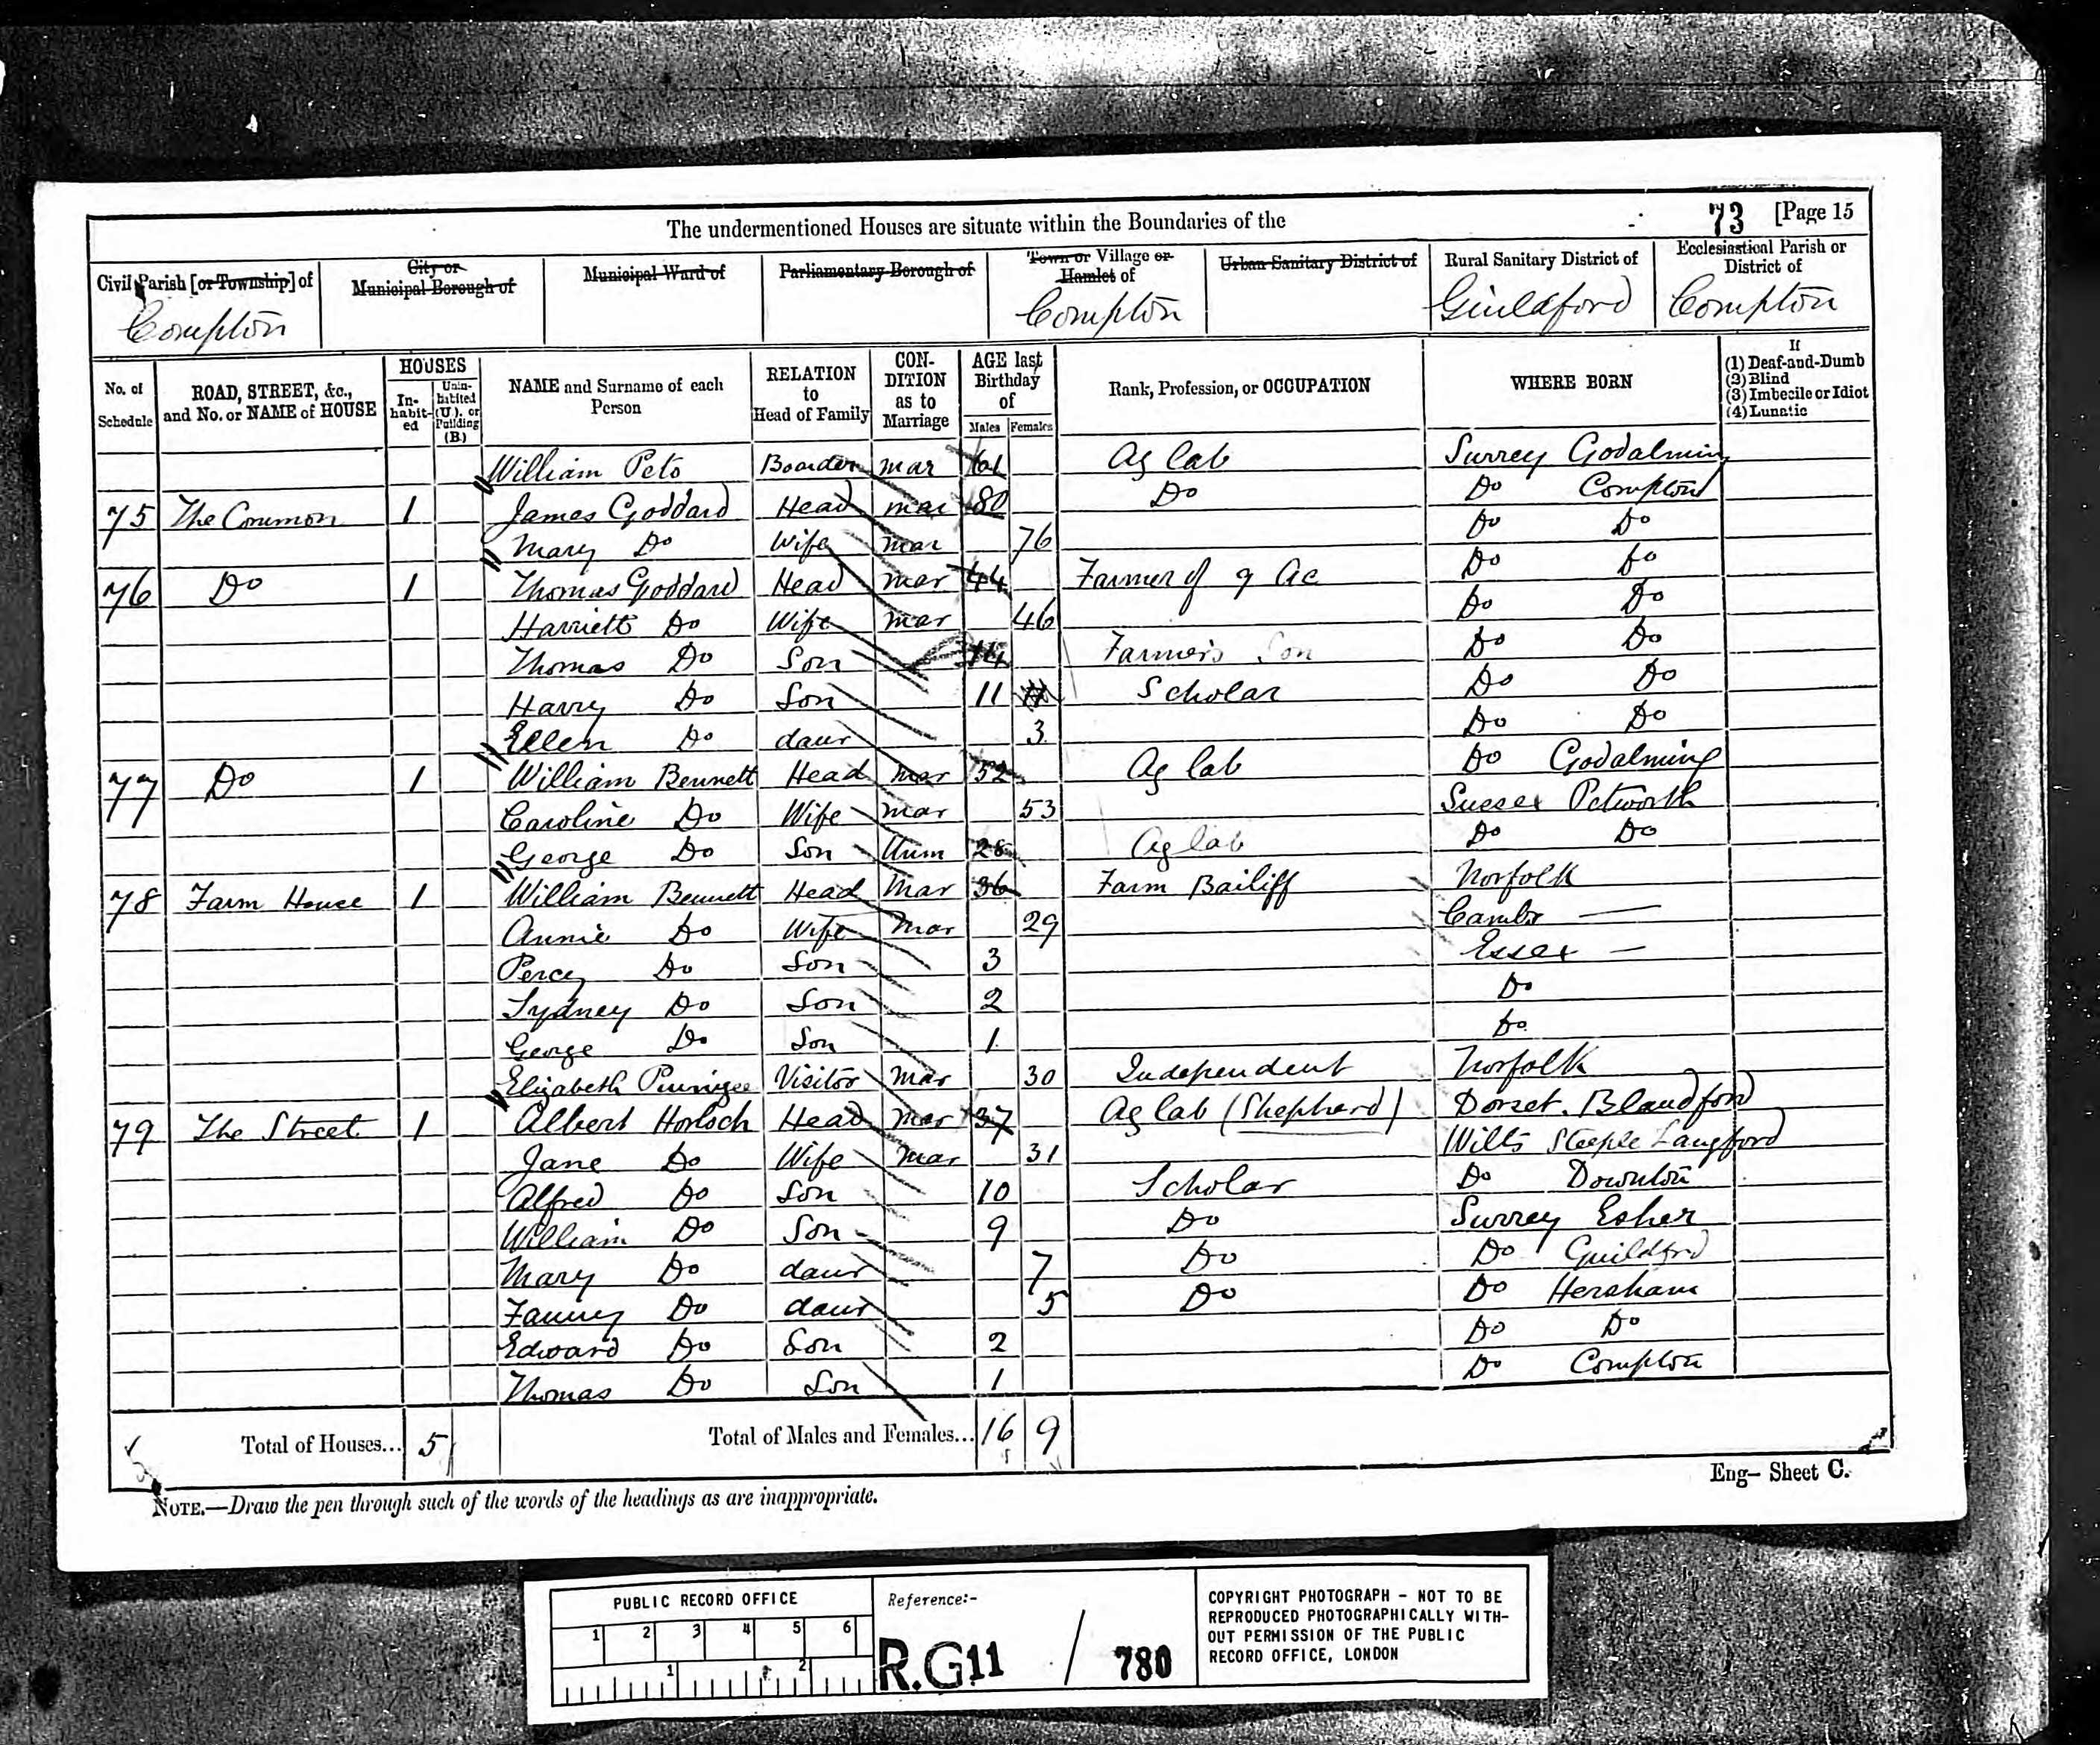 The undermentioned Houses are situate within the Boundaries of the 73 [Page 15
Civil Parish [or Township] of City or Municipal Borough of Municipal Ward of Parliamentary Borough of Town or Village or Hamlet of Urban Sanitary District of Rural Sanitary District of Ecclesiastical Parish or District of
Compton Compton Guildford Compton
No. of Schedule ROAD, STREET, &c., and No. or NAME of HOUSE HOUSES Inhabited Uninhabited (U.), or Building (B.) NAME and Surname of each Person RELATION to Head of Family CONDITION as to Marriage AGE last Birthday of Males Females Rank, Profession, or OCCUPATION WHERE BORN If (1) Deaf-and-Dumb (2) Blind (3) Imbecile or Idiot (4) Lunatic
William Peto Boarder mar 61 Ag lab Surrey Godalming
75 The Common 1 James Goddard Head mar 80 Do Do Compton
Mary Do Wife mar 76 Do Do
76 Do 1 Thomas Goddard Head mar 44 Farmer of 9 Ac Do Do
Harriett Do Wife mar 46 Do Do
Thomas Do Son 14 Farmer's Son Do Do
Harry Do Son 11 Scholar Do Do
Ellen Do daur 3 Do Do
77 Do 1 William Bennett Head mar 52 Ag lab Do Godalming
Caroline Do Wife mar 53 Sussex Petworth
George Do Son Unm 28 Ag lab Do Do
78 Farm House 1 William Bennett Head Mar 36 Farm Bailiff Norfolk
Annie Do Wife Mar 29 Cambs —
Percy Do Son 3 Essex —
Sydney Do Son 2 Do
George Do Son 1 Do
Elizabeth Visitor Mar 30 Independent Norfolk
79 The Street 1 Albert Horlock Head Mar 37 Ag lab (Shepherd) Dorset. Blandford
Jane Do Wife Mar 31 Wilts Steeple Langford
Alfred Do Son 10 Scholar Do Downton
William Do Son 9 Do Surrey Esher
Mary Do daur 7 Do Do Guildford
Fanny Do daur 5 Do Do Hersham
Edward Do Son 2 Do Do
Thomas Do Son 1 Do Compton
Total of Houses... 5 Total of Males and Females... 16 9
Eng— Sheet C.
NOTE.—Draw the pen through such of the words of the headings as are inappropriate.
PUBLIC RECORD OFFICE
1 2 3 4 5 6
1 2
Reference:-
R.G11 / 780
COPYRIGHT PHOTOGRAPH - NOT TO BE
REPRODUCED PHOTOGRAPHICALLY WITH-
OUT PERMISSION OF THE PUBLIC
RECORD OFFICE, LONDON